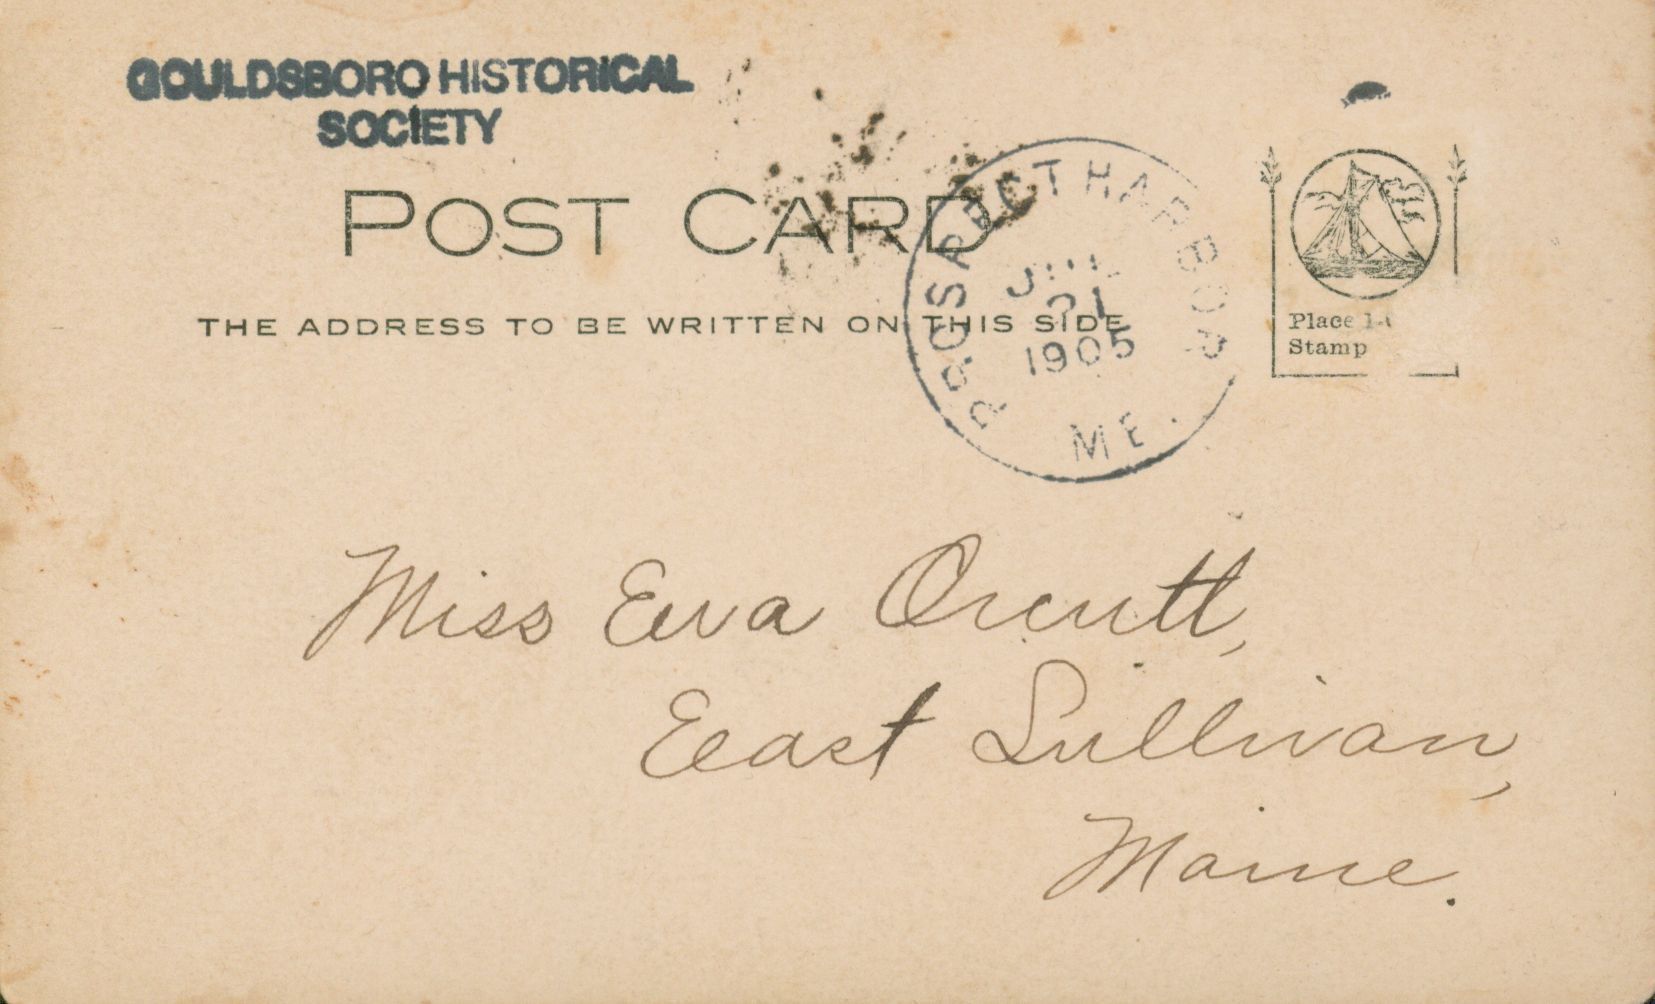 GOULDSBORO HISTORICAL
SOCIETY
POST CARD
THE ADDRESS TO BE WRITTEN ON THIS SIDE
PROSPECT HARBOR
21
1905
ME.
Place 1-
Stamp
Miss Eva Orcutt,
East Sullivan,
Maine.